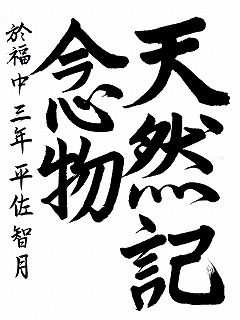 天然記
念物
於福中三年平佐智月